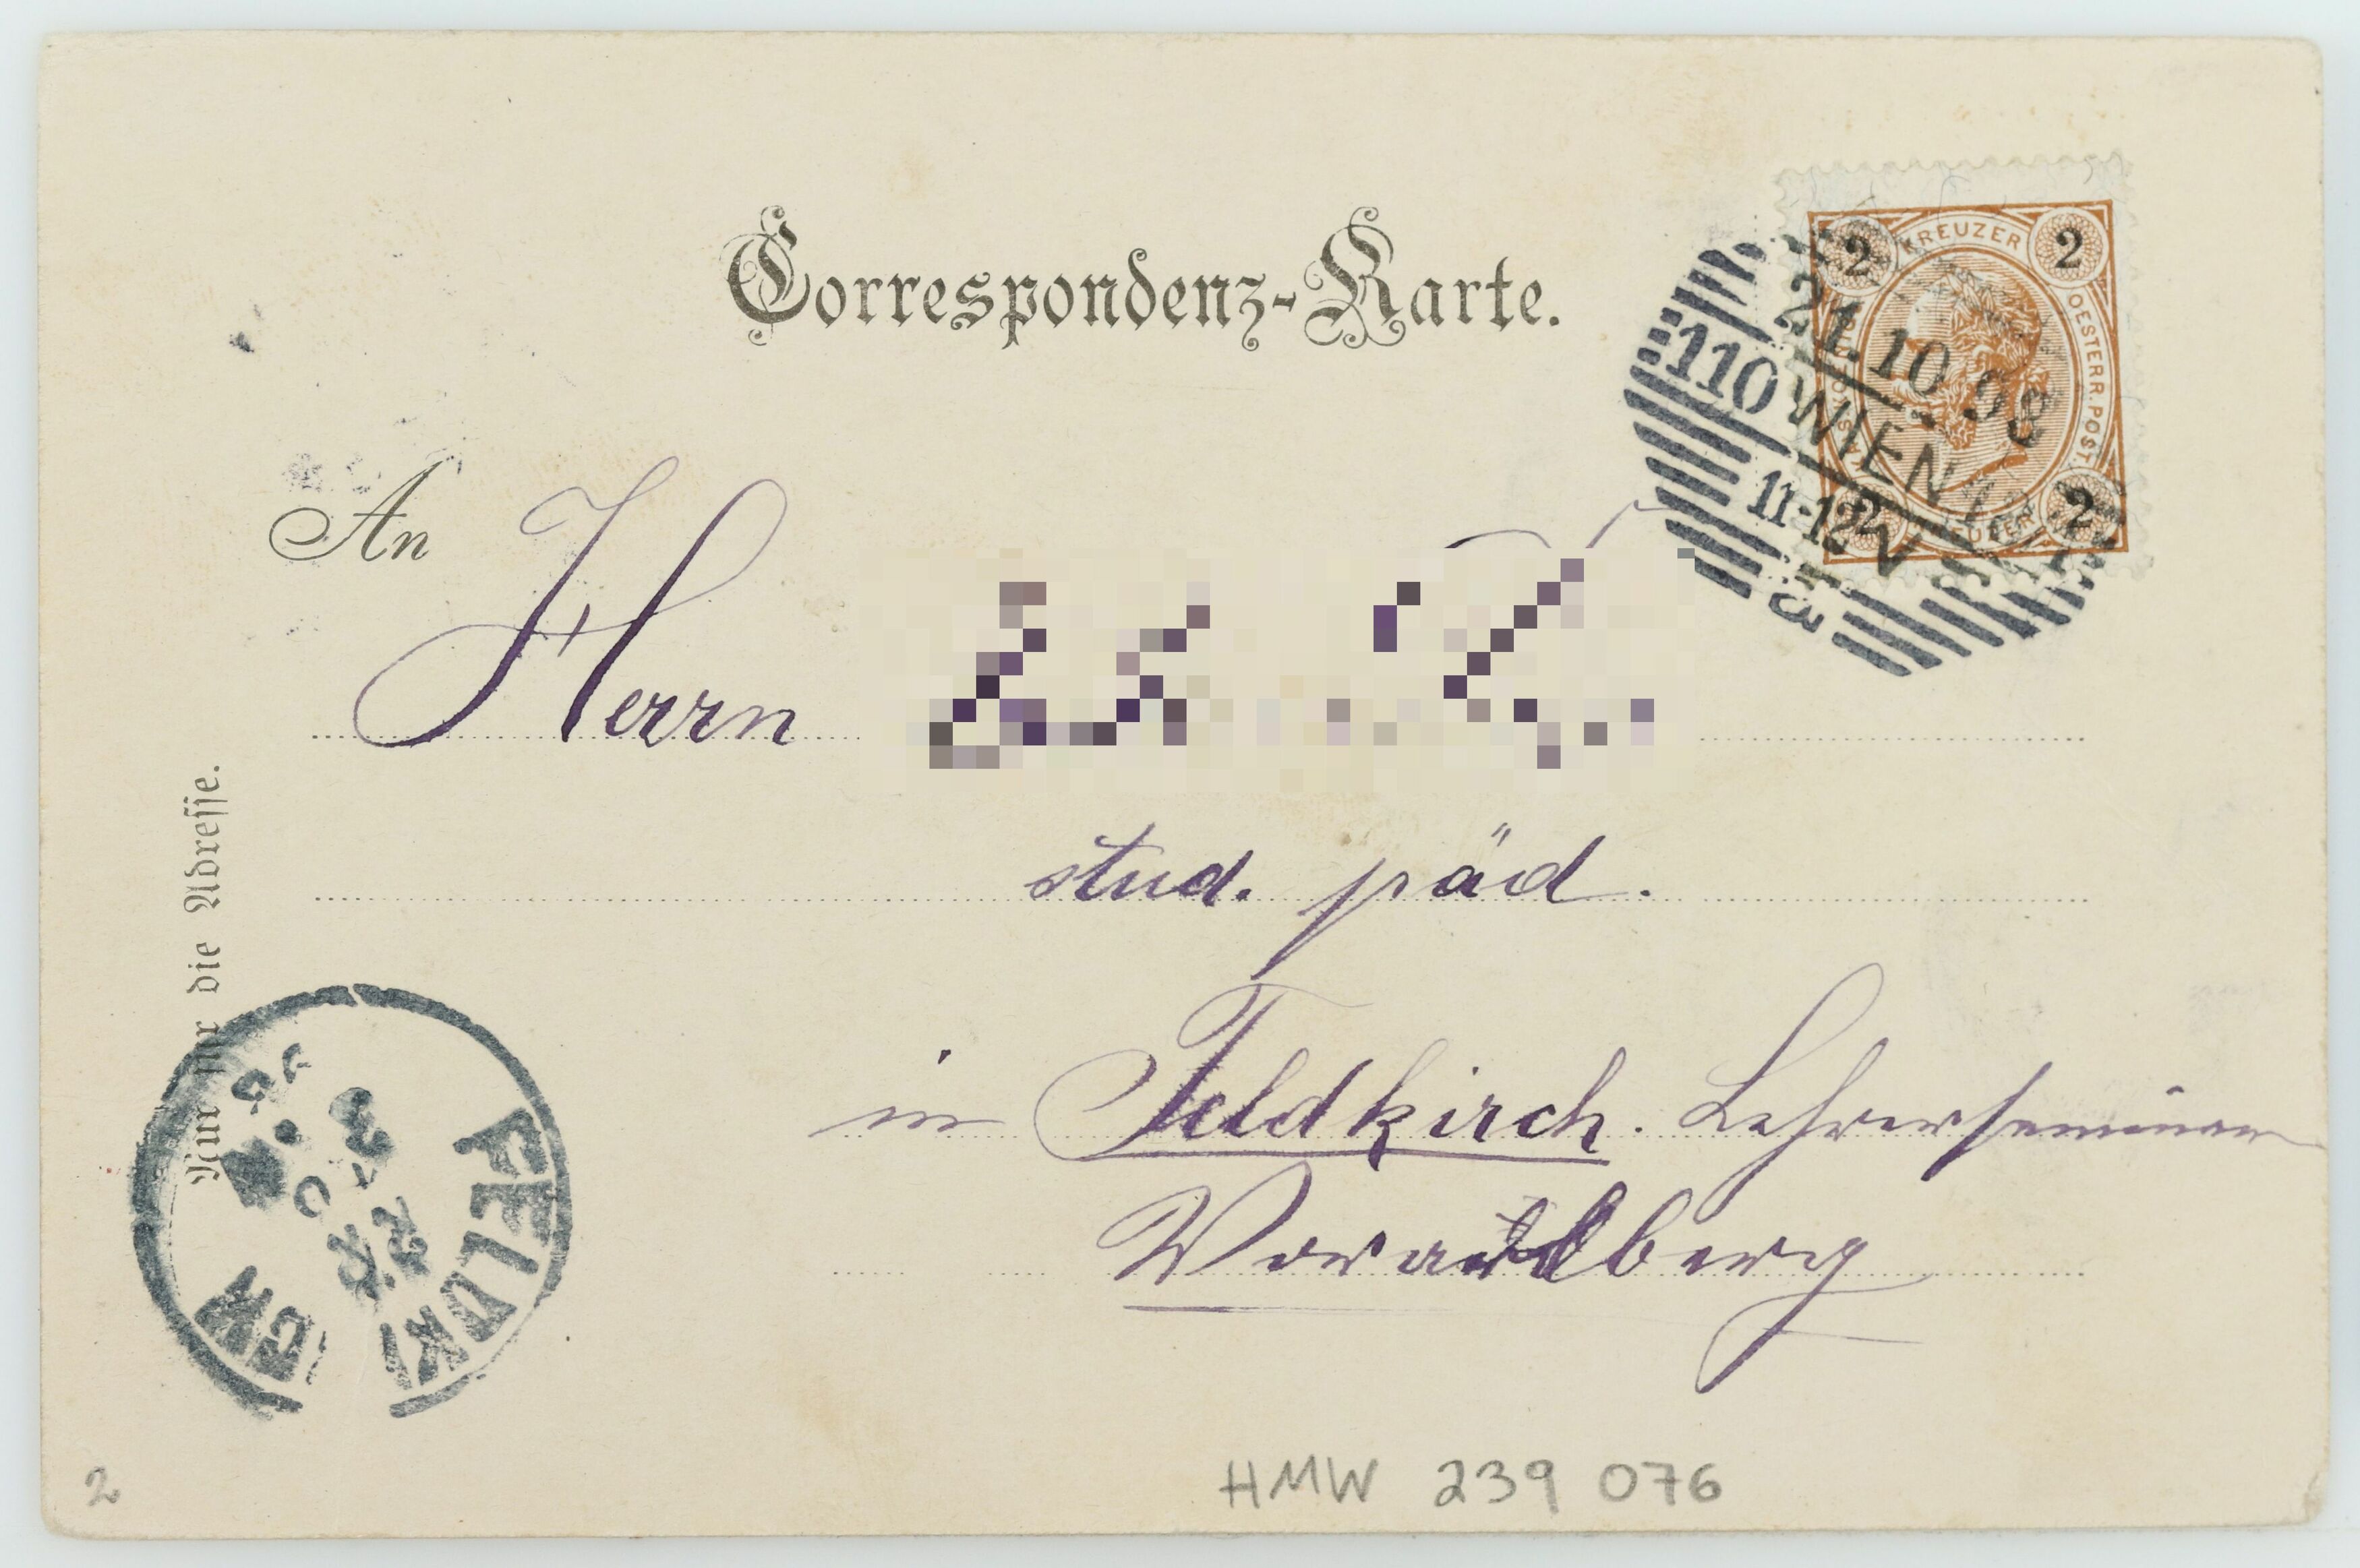 Correspondenz-Karte.
2 KREUZER 2
OESTERR. POST.
21.10.98
110 WIEN
11-12 N
a
2 2
An
Herrn
stud. päd.
in Feldkirch. Lehrerseminar
Vorarlberg
Nur für die Adresse.
FELDKI
HMW 239 076
2